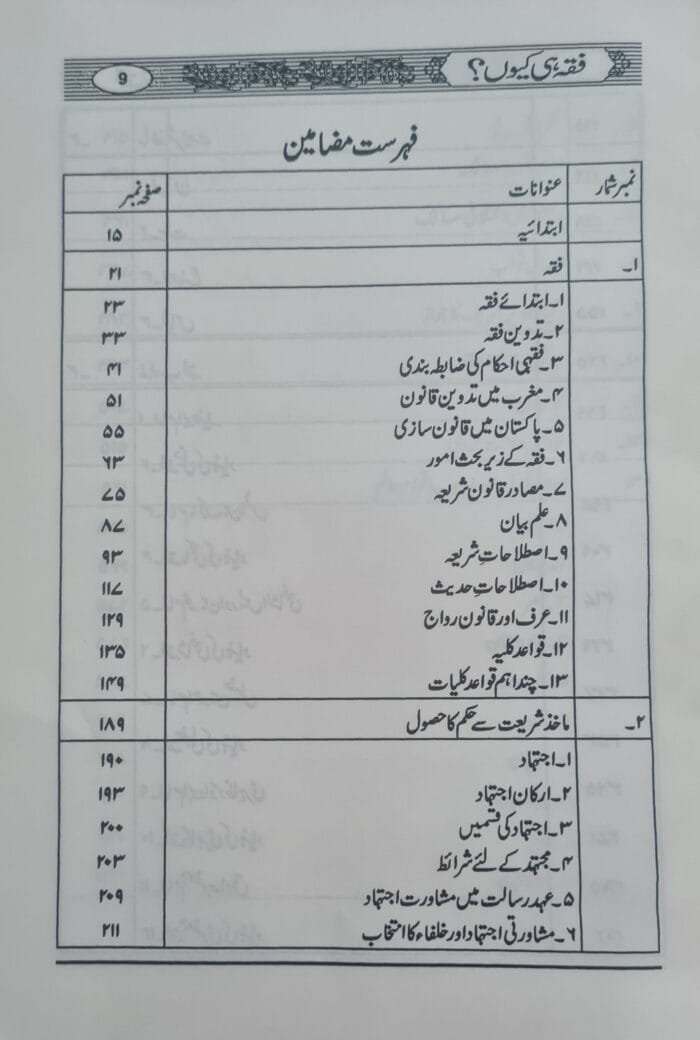 فقہ ہی کیوں؟ 9
فہرست مضامین
نمبر شمار عنوانات صفحہ نمبر
ابتدائیہ ۱۵
۱۔ فقہ ۲۱
۱۔ ابتدائے فقہ ۲۳
۲۔ تدوین فقہ ۳۳
۳۔ فقہی احکام کی ضابطہ بندی ۴۱
۴۔ مغرب میں تدوین قانون ۵۱
۵۔ پاکستان میں قانون سازی ۵۵
۶۔ فقہ کے زیر بحث امور ۶۳
۷۔ مصادر قانون شریعہ ۷۵
۸۔ علم بیان ۸۷
۹۔ اصطلاحاتِ شریعہ ۹۳
۱۰۔ اصطلاحاتِ حدیث ۱۱۷
۱۱۔ عرف اور قانون رواج ۱۲۹
۱۲۔ قواعد کلیہ ۱۳۵
۱۳۔ چند اہم قواعد کلیات ۱۴۹
۲۔ ماخذ شریعت سے حکم کا حصول ۱۸۹
۱۔ اجتہاد ۱۹۰
۲۔ ارکان اجتہاد ۱۹۳
۳۔ اجتہاد کی قسمیں ۲۰۰
۴۔ مجتہد کے لئے شرائط ۲۰۳
۵۔ عہد رسالت میں مشاورت اجتہاد ۲۰۹
۶۔ مشاورتی اجتہاد اور خلفاء کا انتخاب ۲۱۱